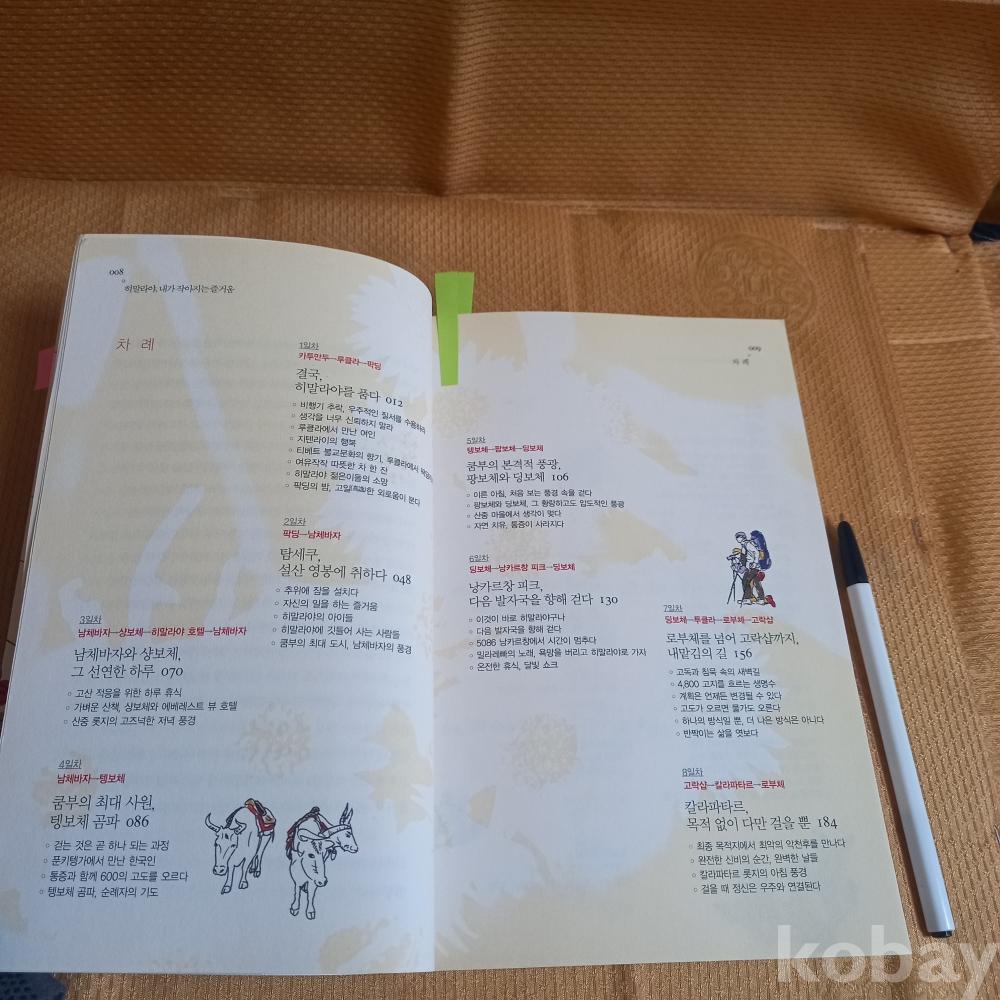 008
히말라야, 내가 작아지는 즐거움
차 례
1일차
카투만두→루클라→팍딩
결국,
히말라야를 품다 012
비행기 추락, 우주적인 질서를 수용하라
생각을 너무 신뢰하지 말라
루클라에서 만난 여인
지텐라이의 행복
티베트 불교문화의 향기, 루클라에서
여유작작 따뜻한 차 한 잔
히말라야 젊은이들의 소망
팍딩의 밤, 고일한 외로움이 묻다
2일차
팍딩→남체바자
탐세쿠,
설산 영봉에 취하다 048
추위에 잠을 설치다
자신의 일을 하는 즐거움
히말라야의 아이들
히말라야에 깃들어 사는 사람들
쿰부의 최대 도시, 남체바자의 풍경
3일차
남체바자→샹보체→히말라야 호텔→남체바자
남체바자와 샹보체,
그 선연한 하루 070
고산 적응을 위한 하루 휴식
가벼운 산책, 샹보체와 에베레스트 뷰 호텔
산중 롯지의 고즈넉한 저녁 풍경
4일차
남체바자→텡보체
쿰부의 최대 사원,
텡보체 곰파 086
걷는 것은 곧 하나 되는 과정
푼키텡가에서 만난 한국인
통증과 함께 600의 고도를 오르다
텡보체 곰파, 순례자의 기도
009
차 례
5일차
텡보체→팡보체→딩보체
쿰부의 본격적 풍광,
팡보체와 딩보체 106
이른 아침, 처음 보는 풍경 속을 걷다
팡보체와 딩보체, 그 황량하고도 압도적인 풍광
산중 마을에서 생각이 멎다
자연 치유, 통증이 사라지다
6일차
딩보체→낭카르창 피크→딩보체
낭카르창 피크,
다음 발자국을 향해 걷다 130
이것이 바로 히말라야구나
다음 발자국을 향해 걷다
5086 낭카르창에서 시간이 멈추다
밀라레빠의 노래, 욕망을 버리고 히말라야로 가자
온전한 휴식, 달빛 쇼크
7일차
딩보체→투클라→로부체→고락샵
로부체를 넘어 고락샵까지,
내맡김의 길 156
고독과 침묵 속의 새벽길
4,800 고지를 흐르는 생명수
계획은 언제든 변경될 수 있다
고도가 오르면 물가도 오른다
하나의 방식일 뿐, 더 나은 방식은 아니다
반짝이는 삶을 엿보다
8일차
고락샵→칼라파타르→로부체
칼라파타르,
목적 없이 다만 걸을 뿐 184
최종 목적지에서 최악의 악천후를 만나다
완전한 신비의 순간, 완벽한 날들
칼라파타르 롯지의 아침 풍경
걸을 때 정신은 우주와 연결된다
kobay